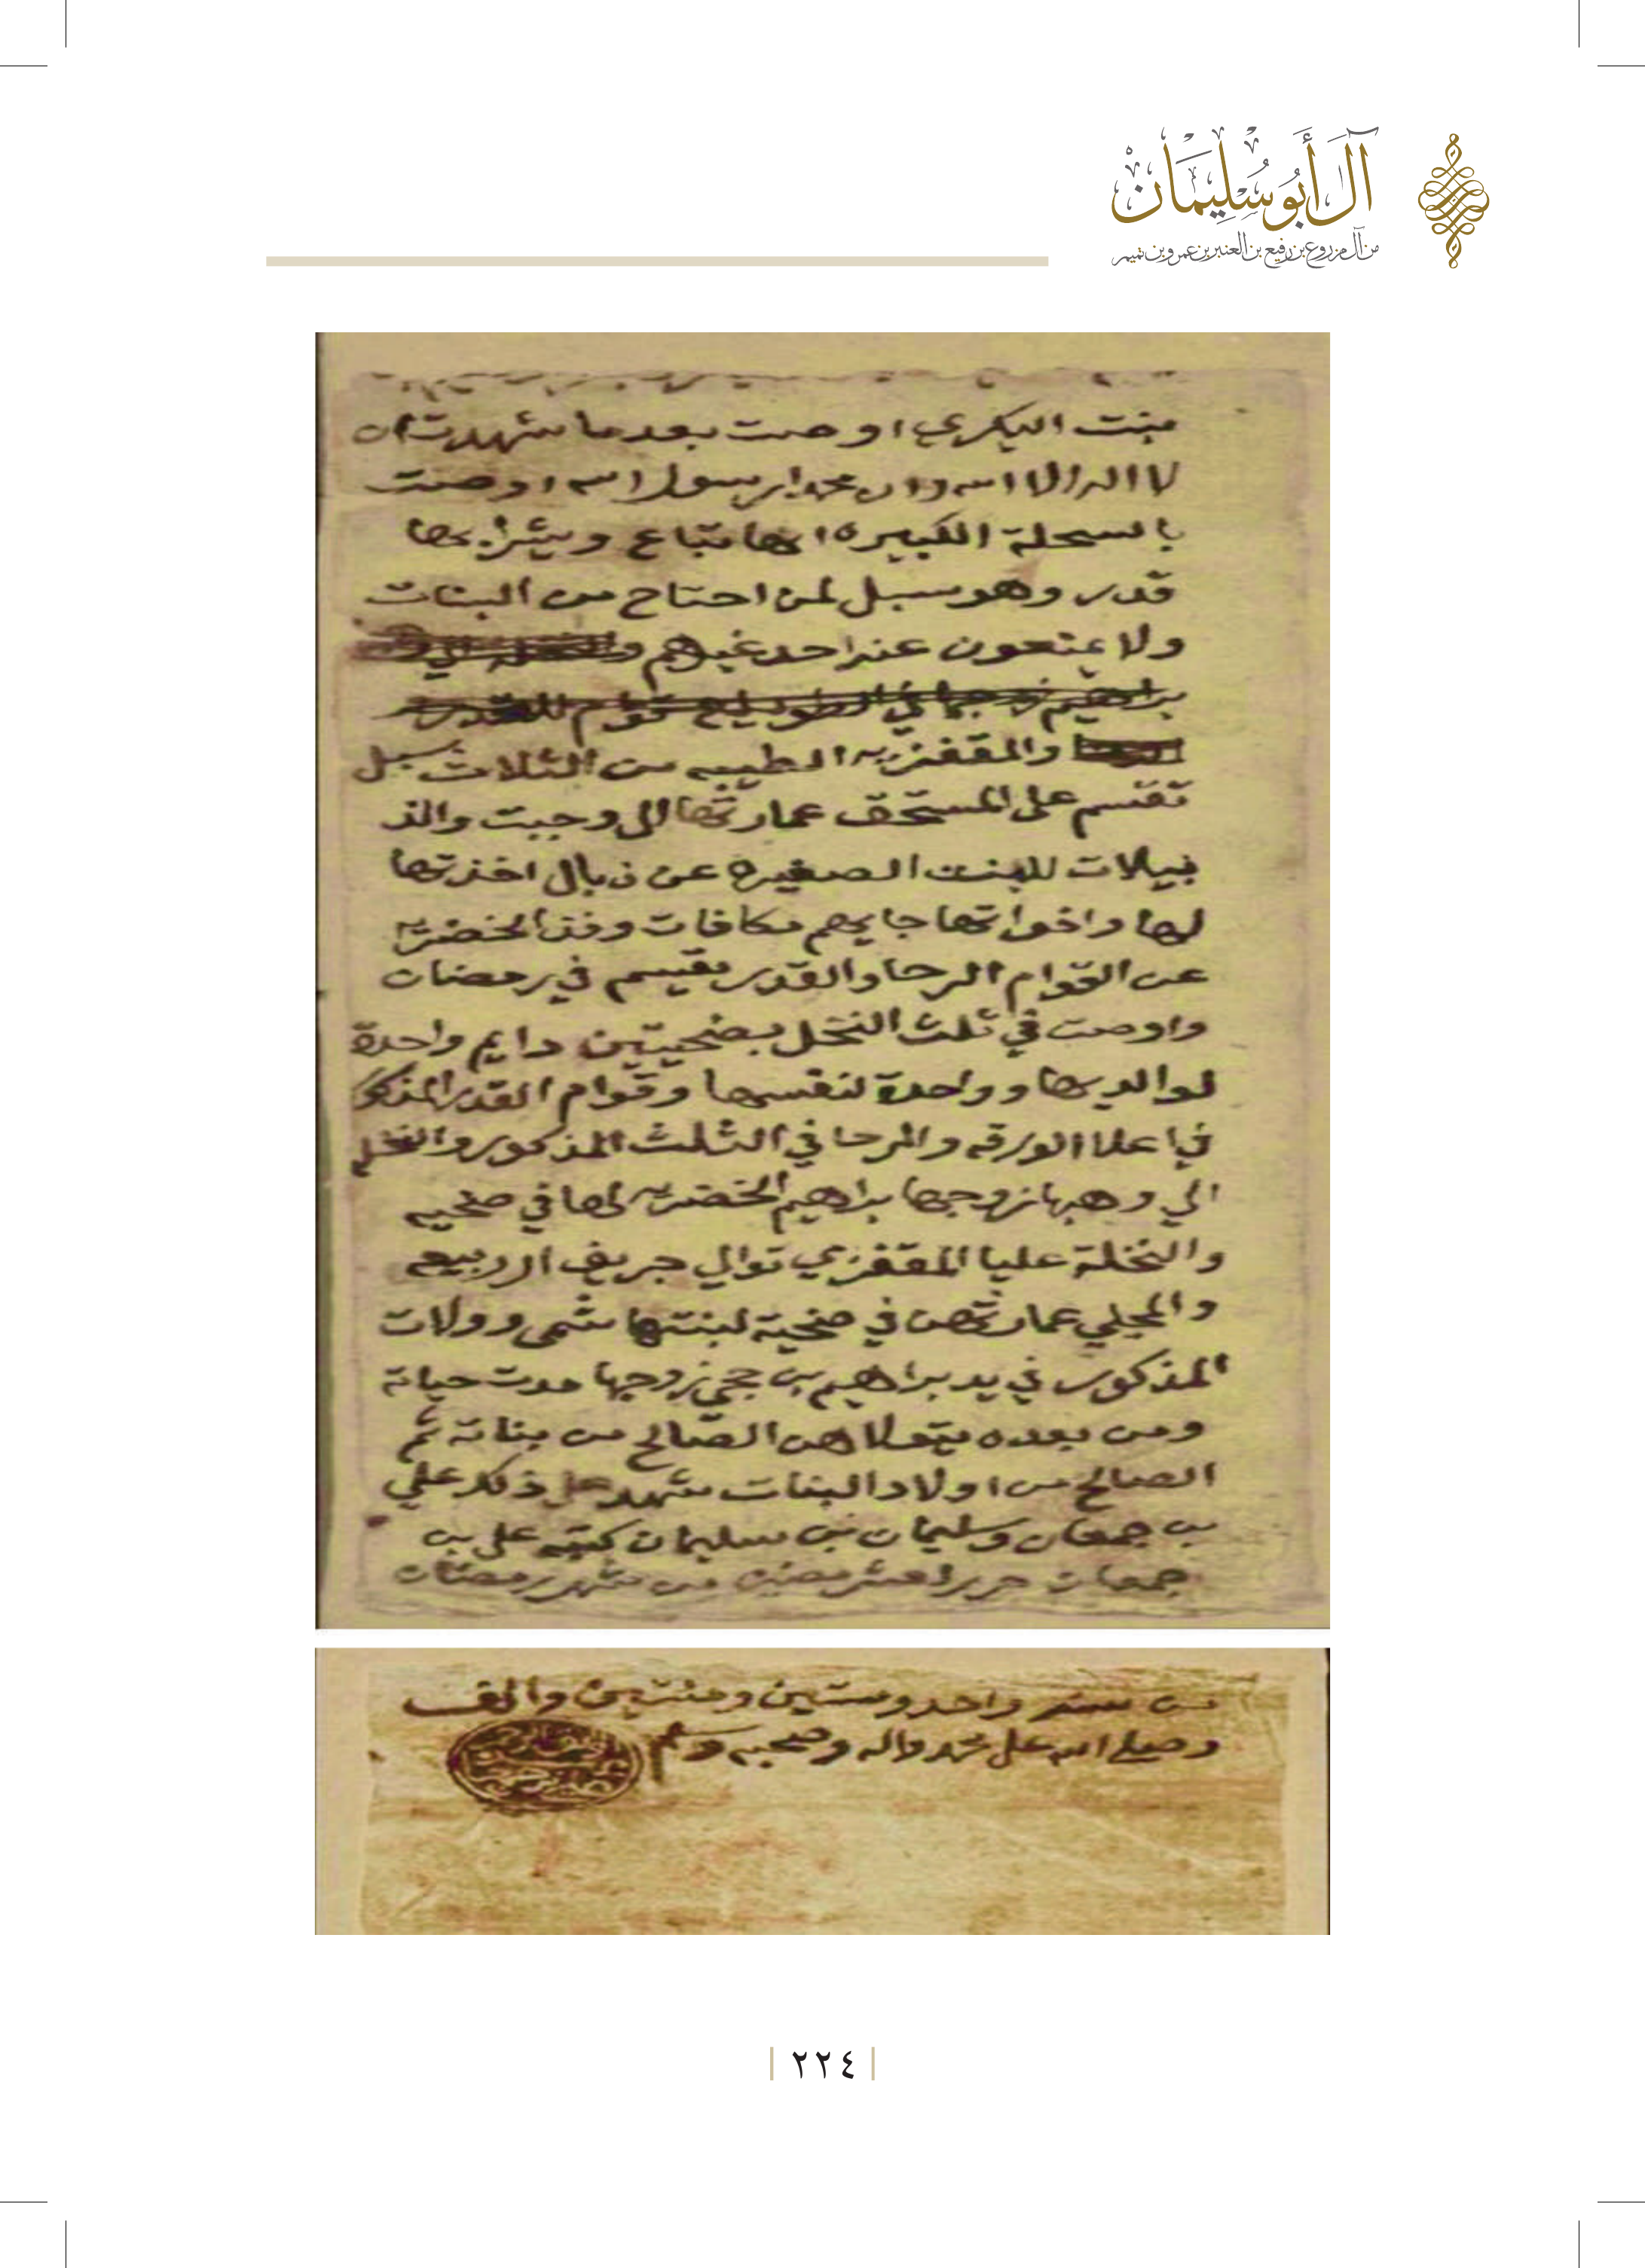 آل أبو سليمان
من آل مزروع بن رفيع بن العنبر بن عمرو بن تميم
بنت البكري اوصت بعدما شهدت ان
لا اله الا الله وان محمدا رسول الله اوصت
بالسحلة الكبيره انها تباع ويشرا بها
قدر وهو سبل لمن احتاج من البنات
ولا يمنعون عنه احد غيرهم
والمقفزيه الطيبه من الثلاث سبل
تقسم على المستحق عمارتها الى وجبت والذ
يبلات للبنت الصغيره عن ذبال اخذتها
لها واخواتها جايهم مكافات الخضري
عن القوام الرحا والقدر يقيسم في رمضان
واوصت في ثلث النخل بضحيتين دايم واحدة
لوالديها وواحدة لنفسها وقوام القدر المذكو
في اعلا الورقه والرحا في الثلث المذكور والنخله
الي وهبها زوجها براهيم الخضري لها في ضحيه
والنخلة عليا المقفزي توالي جريف الربيعه
والمجلي عمارتهن في ضحية لبنتها شمى وولات
المذكور في يد براهيم بن حجي زوجها مدت حياته
ومن بعده يتولاهن الصالح من بناته ثم
الصالح من اولاد البنات شهد على ذلك علي
بن جمعان وسليمان بن سليمان كتبه علي بن
جمعان من شهر رمضان
من سنه واحد وستين ومئتين والف
وصلى الله على محمد واله وصحبه وسلم
٢٢٤